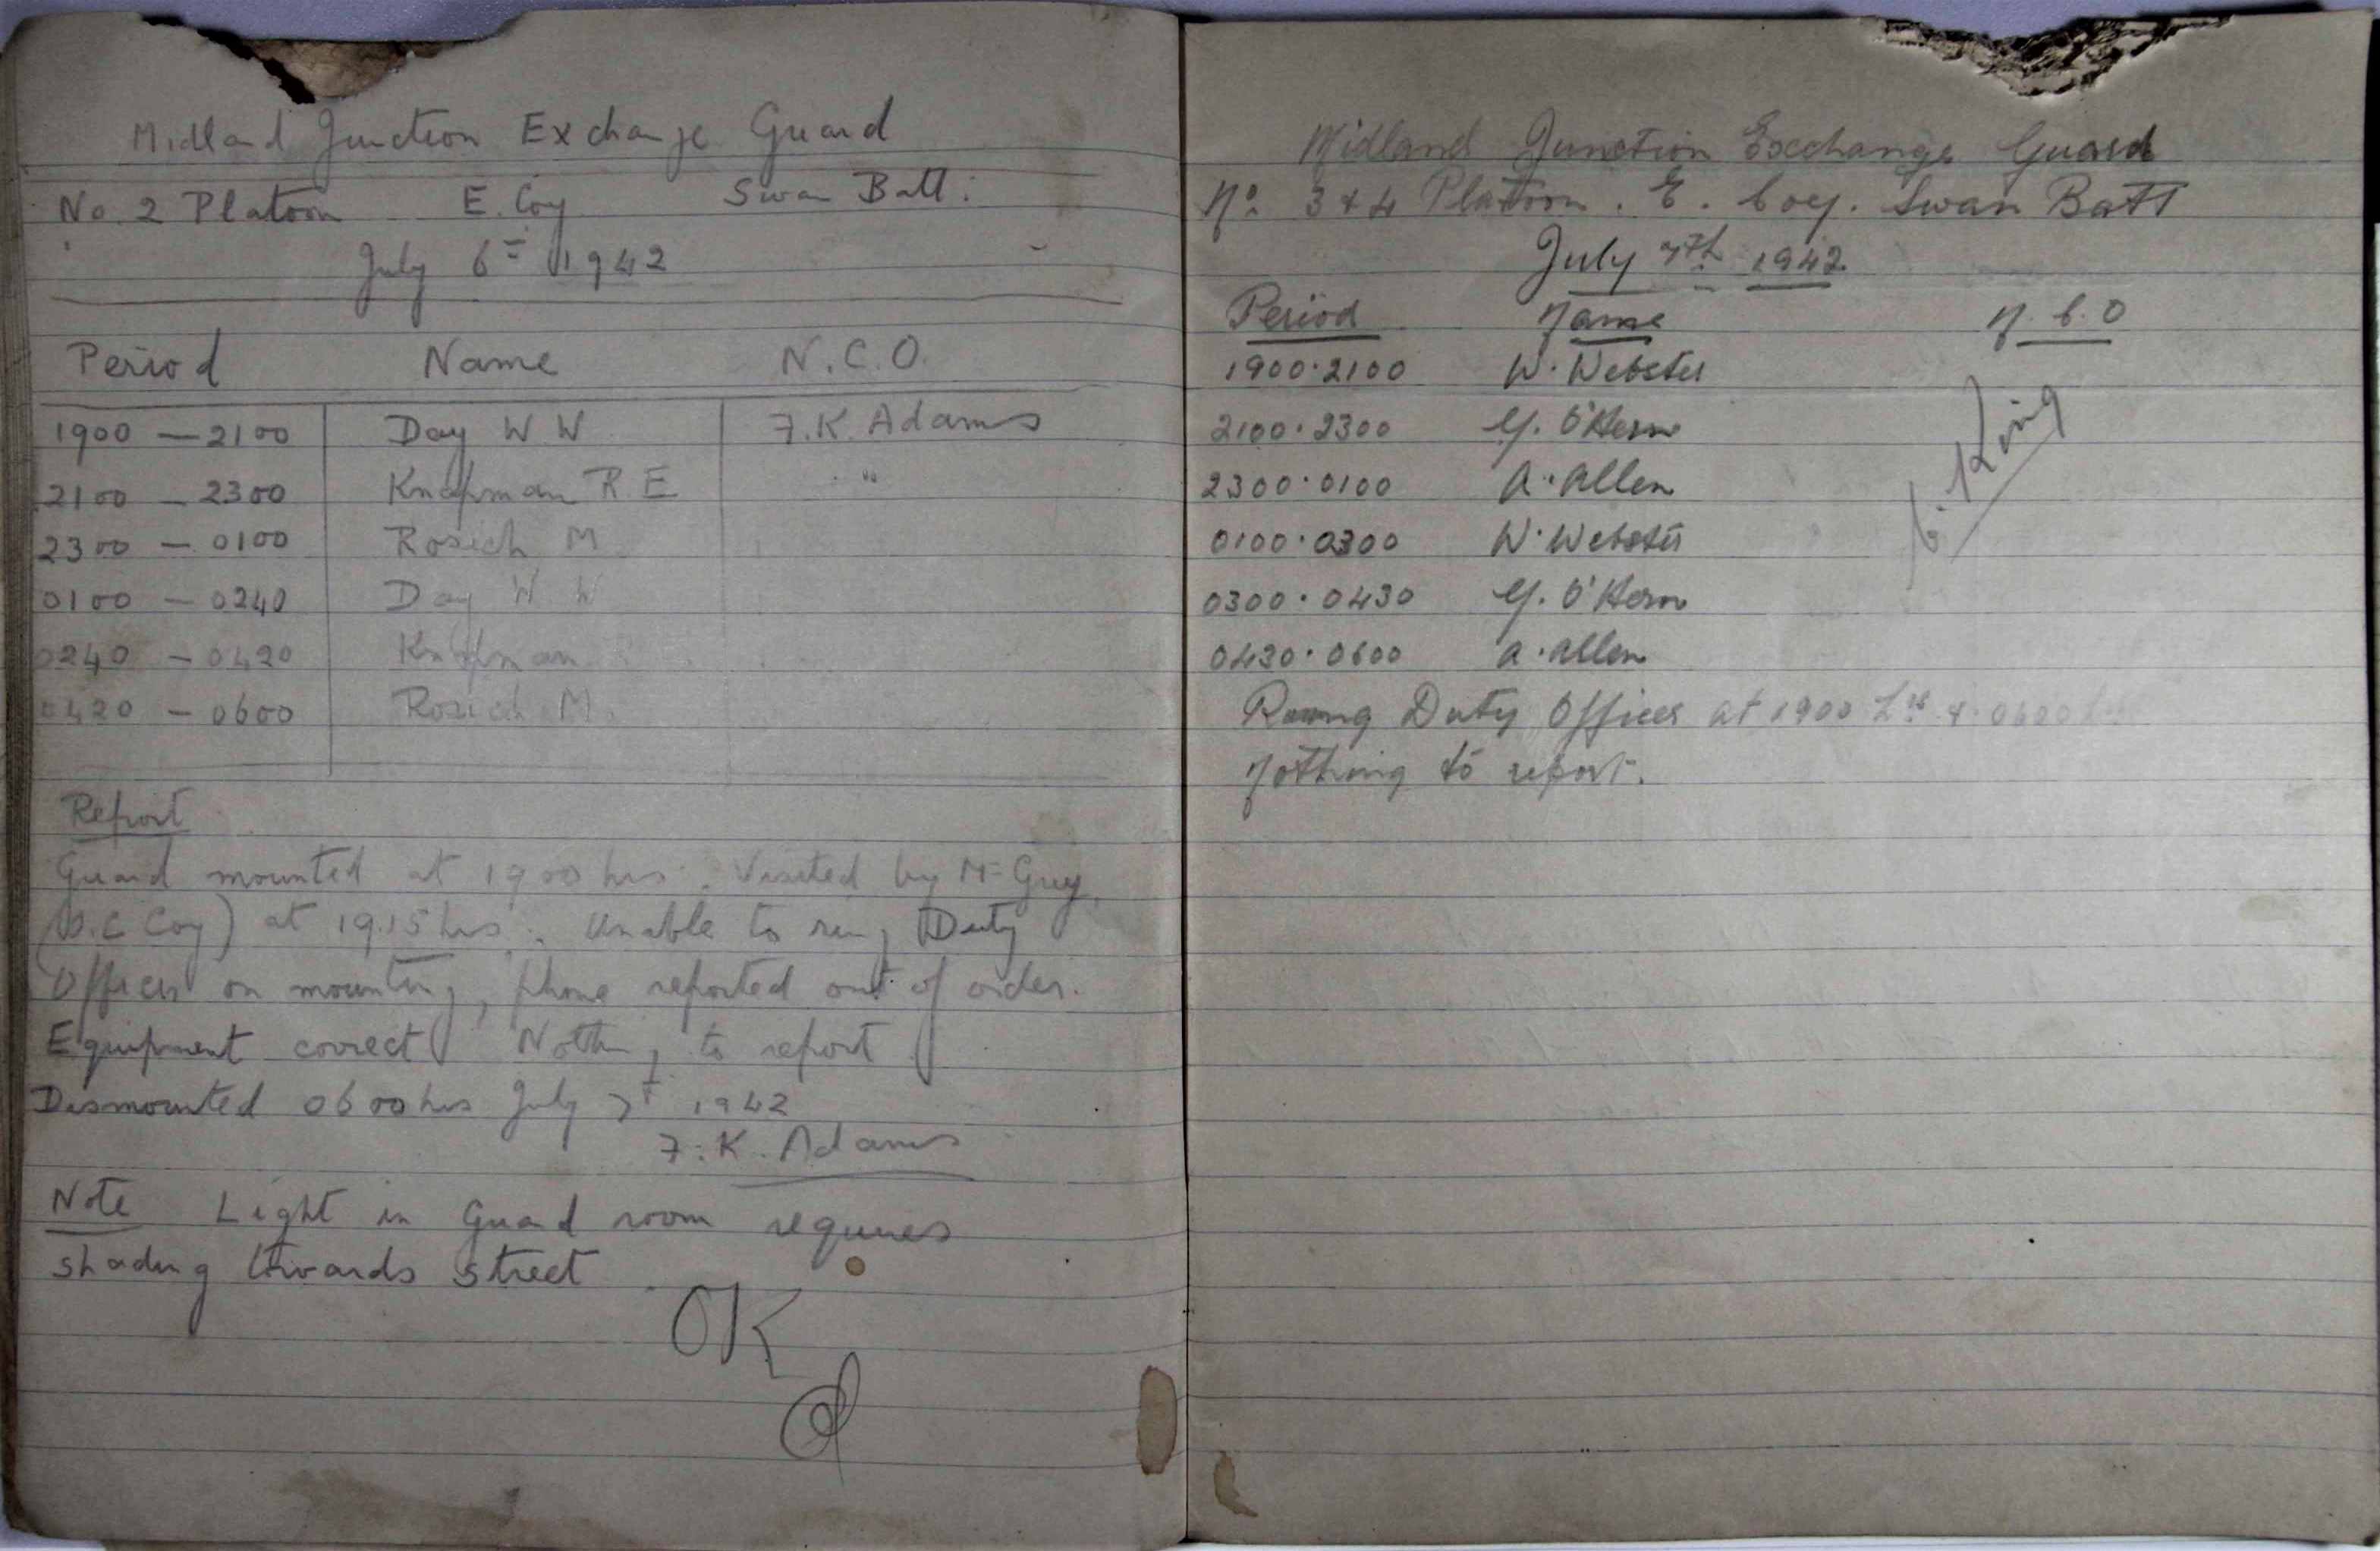 Midland Junction Exchange Guard
No. 2 Platoon E. Coy Swan Batt:
July 6th 1942
Period Name N.C.O.
1900 — 2100 Day W W F.K. Adams
2100 — 2300 Knapman R.E "
2300 — 0100 Rosich M
0100 — 0240 Day W. W
0240 — 0420 Knapman
0420 — 0600 Rosich M.
Report
Guard mounted at 1900 hrs. Visited by Mr Guy
(O.C Coy) at 19.15 hrs. Unable to ring Duty
Officer on mounting, phone reported out of order.
Equipment correct Nothing to report
Dismounted 0600 hrs July 7th 1942
F.K. Adams
Note Light in Guard room requires
shading towards street
OK
Midland Junction Exchange Guard
No. 3 & 4 Platoon. E. Coy. Swan Batt
July 7th 1942
Period Name N.C.O
1900.2100 W. Webster
2100.2300 O'Hern
2300.0100 A. Allen
0100.0300 W. Webster
0300.0430 O'Hern
0430.0600 A. Allen
C. King
Duty Officer at 1900 hrs & 0600 hrs
Nothing to report.